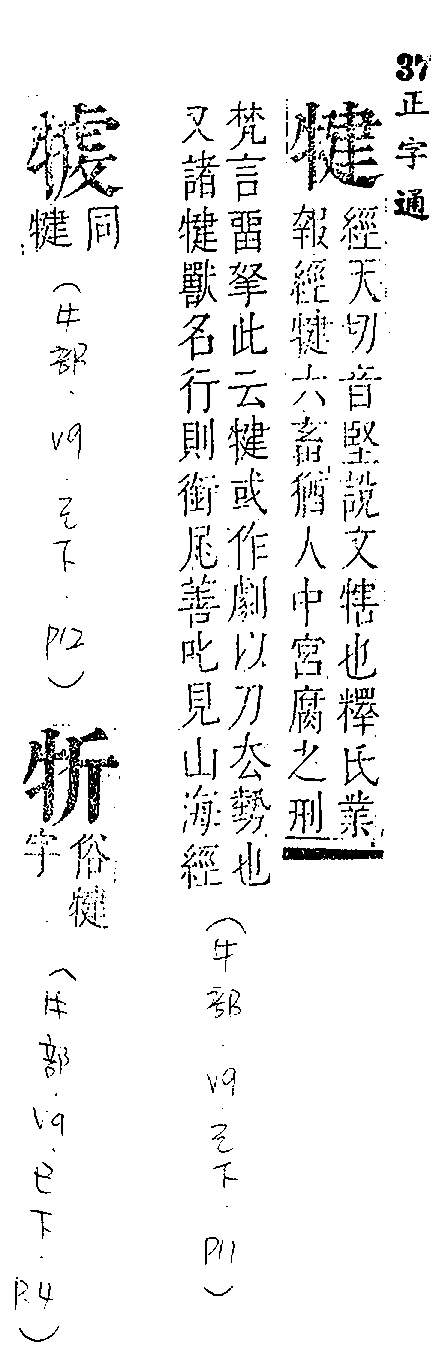 37正字通
犍
經天切音堅說文犗也釋氏業
報經犍六畜猶人中宮腐之刑
梵言畱拏此云犍或作劇以刀厺勢也
又諸犍獸名行則銜尾善叱見山海經
(牛部.V9.巳下.P11)
㹇
同
犍
(牛部.V9.巳下.P12)
㸫
俗犍
字
(牛部.V9.巳下.P.4)